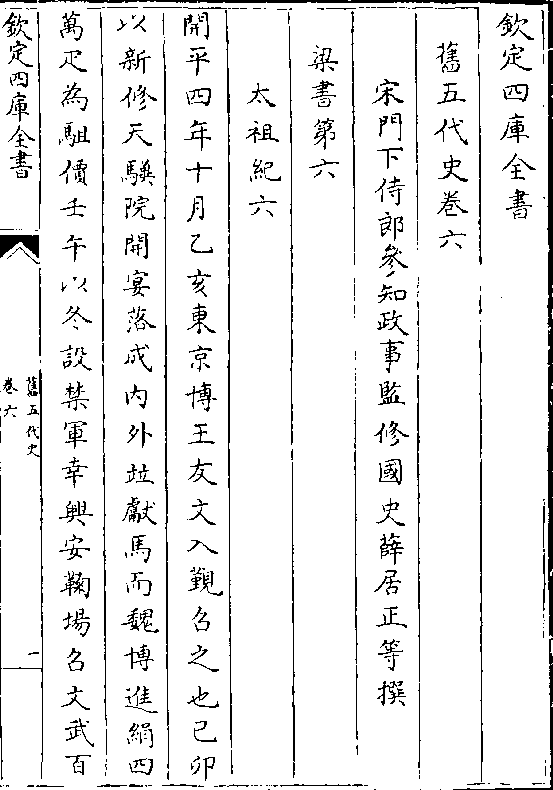 欽定四庫全書
舊五代史卷六
宋門下侍郎參知政事監修國史薛居正等撰
梁書第六
太祖紀六
開平四年十月乙亥東京博王友文入覲召之也已卯
以新修天驥院開宴落成内外竝獻馬而魏博進絹四
萬疋為駔價壬午以冬設禁軍幸興安鞠場召文武百
欽定四庫全書
舊五代史
卷六
一